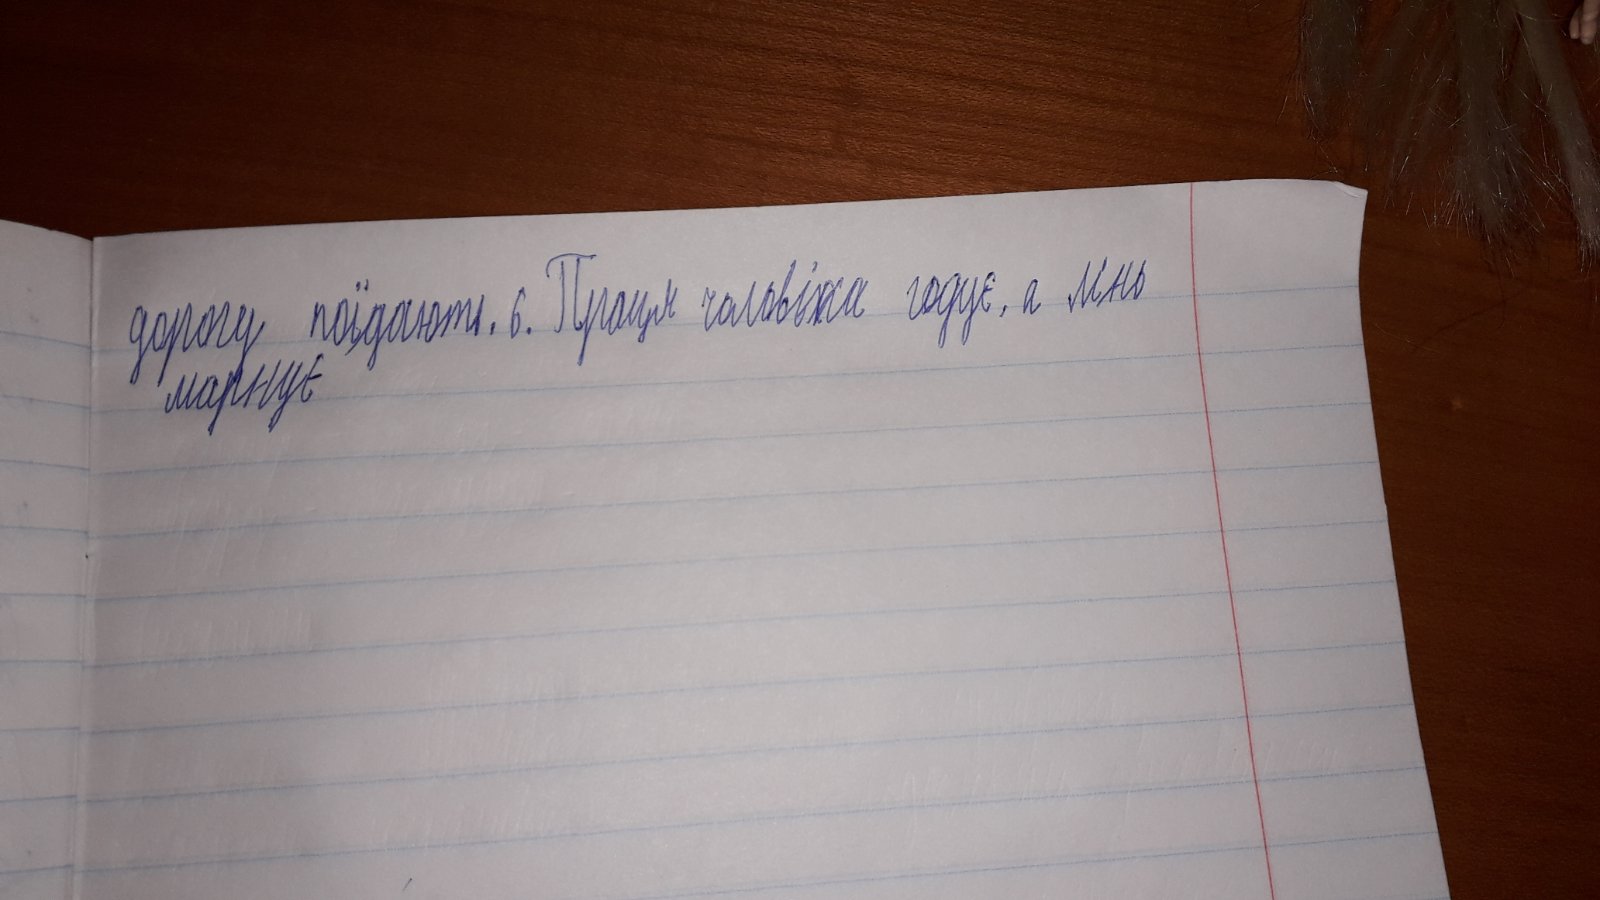 дорогу поїдають. 6. Праця чоловіка годує, а лінь
марнує